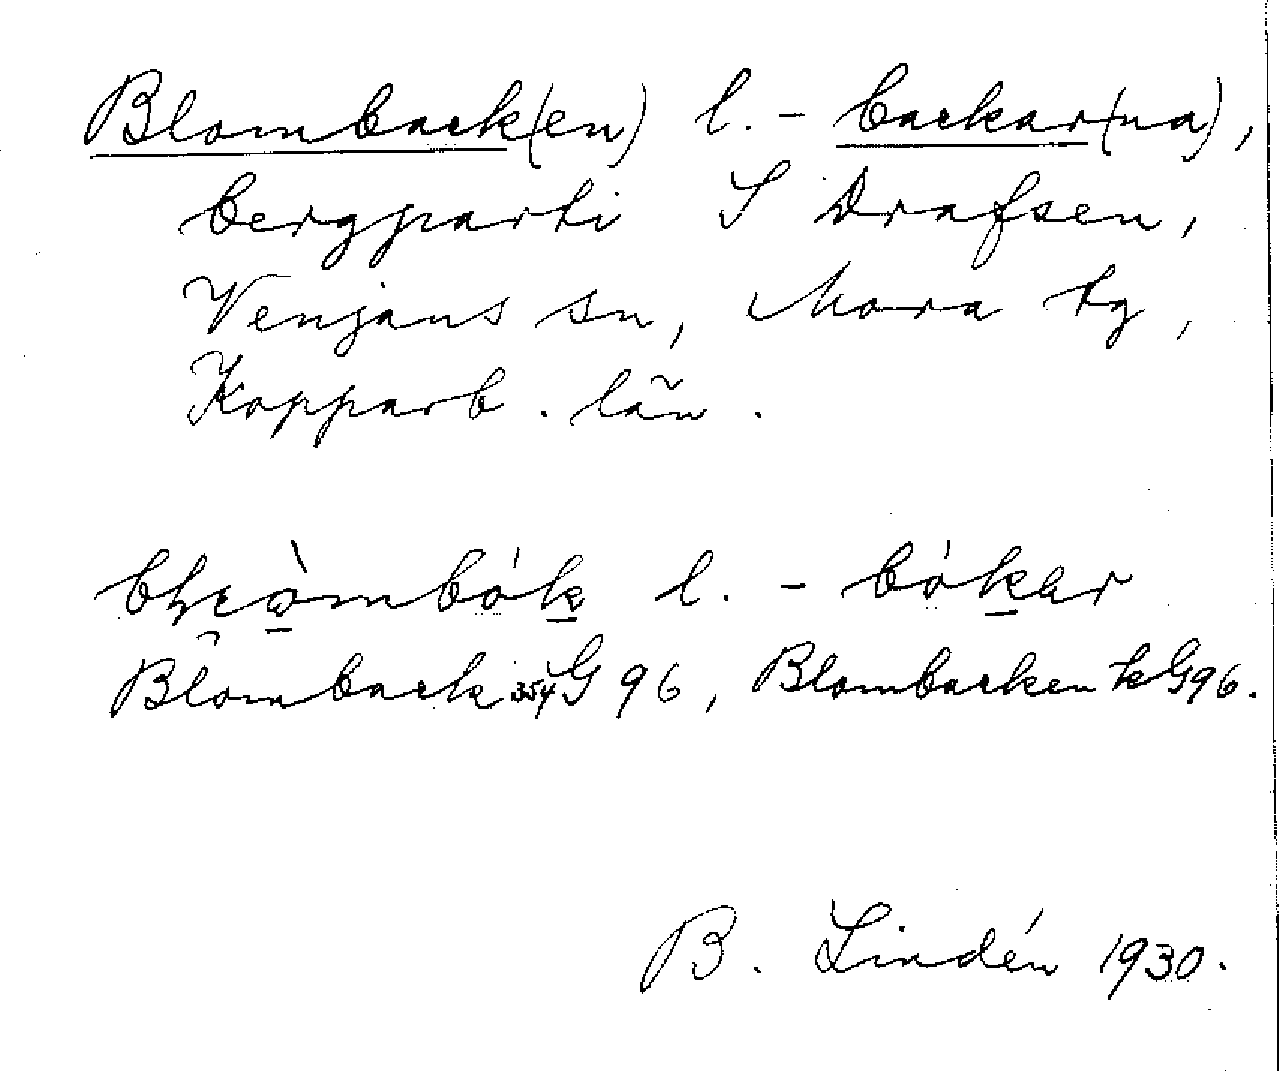 Blomback(en) l. - backar(na),
bergparti S Drafsen,
Venjans sn, Mora tg,
Kopparb. län.
l. - bókar
Blomback 354 G 96, Blombacken k G 96.
B. Lindén 1930.